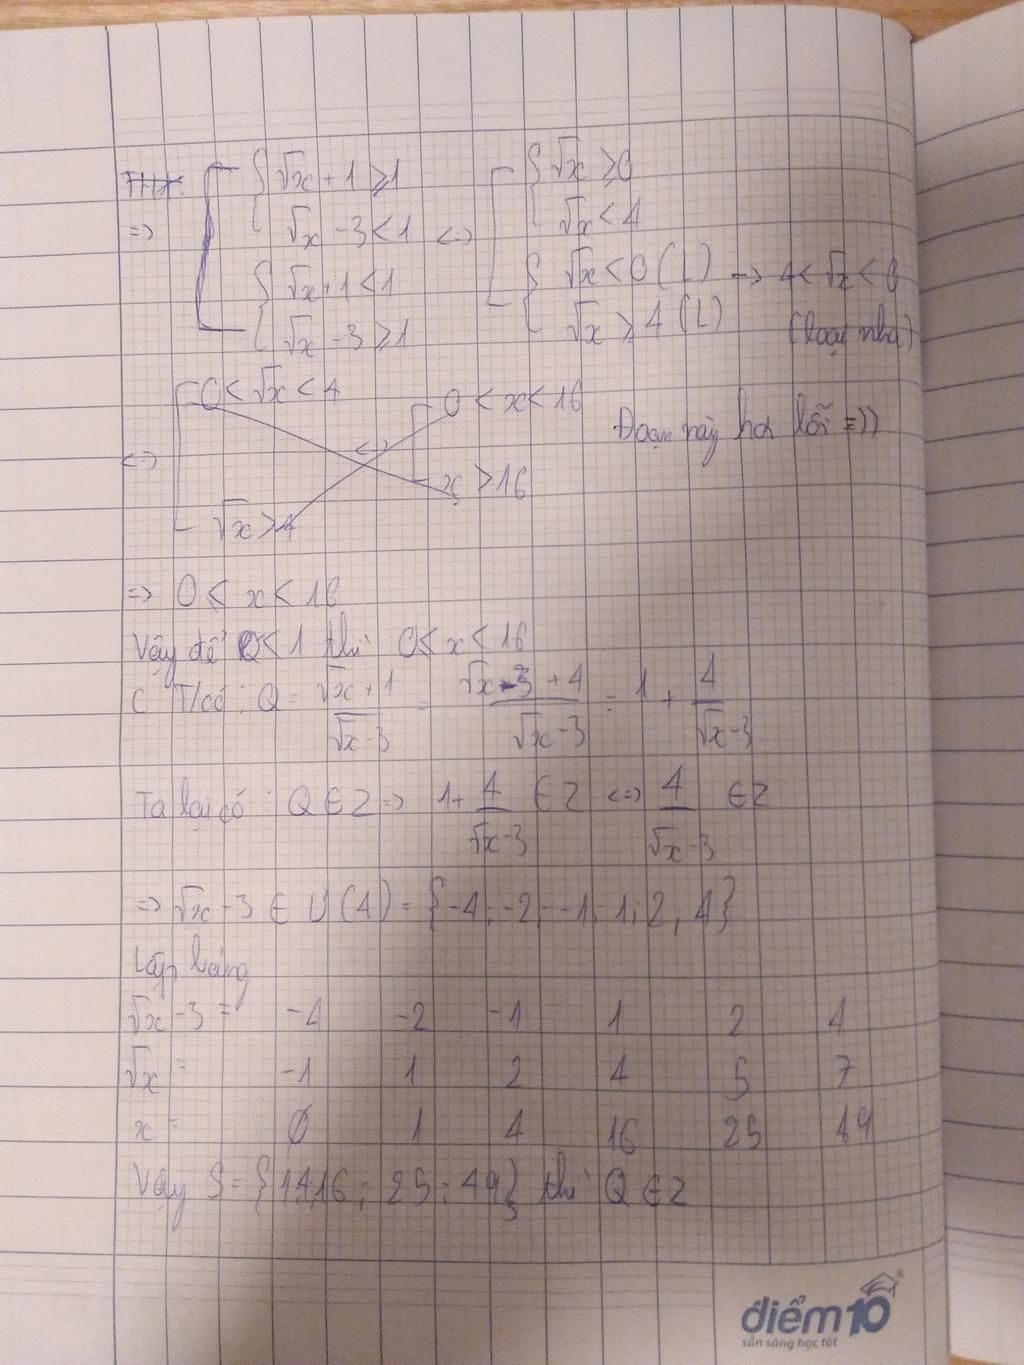 => { √x + 1 ⩾ 1 { √x ⩾ 0
√x - 3 < 1 <=> √x < 4
{ √x + 1 < 1 { √x < 0 (L) -> 4 < √x < 0
√x - 3 ⩾ 1 √x ⩾ 4 (L) (loại nha)
<=> [ 0 < √x < 4 <=> [ 0 < x < 16 Đoạn này hơi lỗi =))
√x > 4 x > 16
=> 0 ⩽ x < 16
Vậy để Q < 1 thì 0 ⩽ x < 16
C T/có: Q = (√x + 1)/(√x - 3) = (√x - 3 + 4)/(√x - 3) = 1 + 4/(√x - 3)
Ta lại có: Q ∈ Z => 1 + 4/(√x - 3) ∈ Z <=> 4/(√x - 3) ∈ Z
=> √x - 3 ∈ Ư(4) = {-4; -2; -1; 1; 2; 4}
Lập bảng
√x - 3 = -4 -2 -1 1 2 4
√x = -1 1 2 4 5 7
x = ∅ 1 4 16 25 49
Vậy S = {1;4;16; 25; 49} thì Q ∈ Z
điểm10®
sẵn sàng học tốt